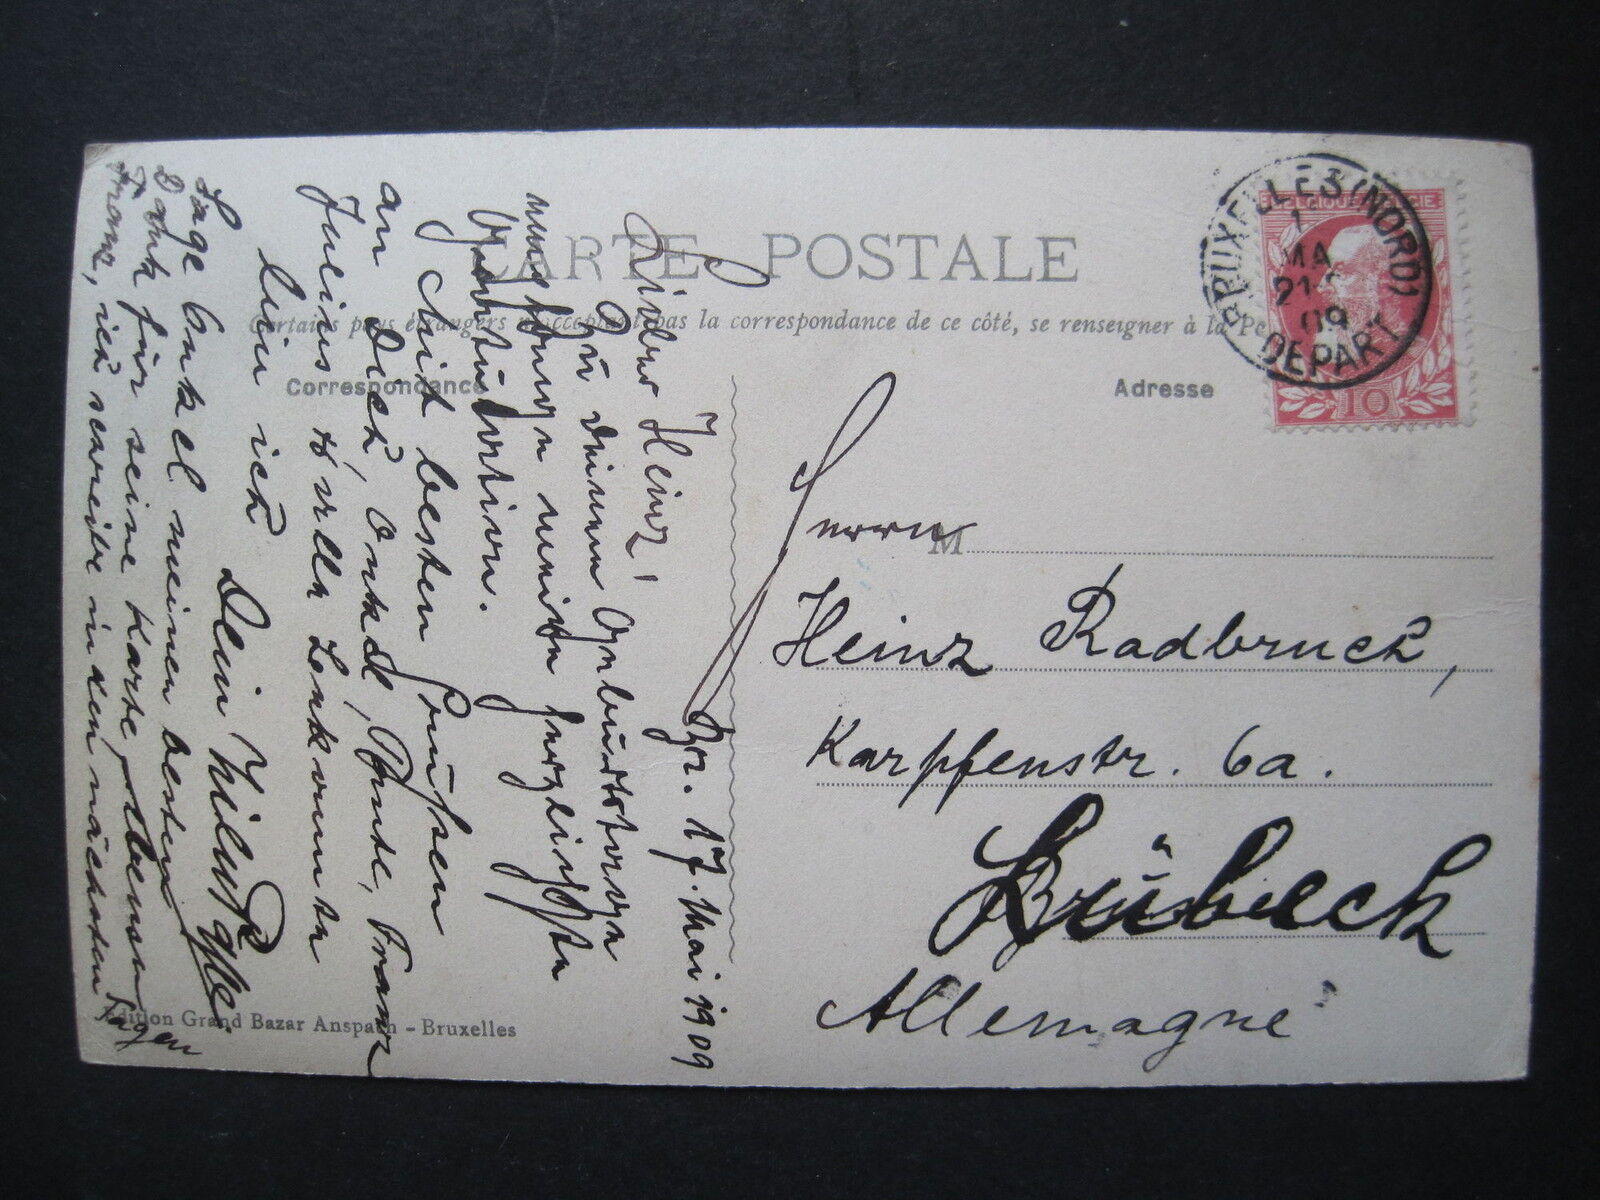 CARTE POSTALE
Certains pays étrangers n'acceptent pas la correspondance de ce côté, se renseigner à la Po
Correspondance
Adresse
BRUXELLES (NORD)
1
MA
21
09
DEPART
BELGIQUE BELGIE
10
Br. 17. Mai 1909
Lieber Heinz!
Zu deinem Geburtstage
meine herzlichste
Gratulation.
Mit besten Grüßen
an Dich, Onkel, Tante, Franz
Julius
bin ich
Dein Hilu
Sage Onkel meinen besten
Dank für seine Karte
Franz, ich schreibe in den nächsten
Tagen
Herrn
M
Heinz Radbruch,
Karpfenstr. 6a.
Lübeck
Allemagne
Edition Grand Bazar Anspach - Bruxelles